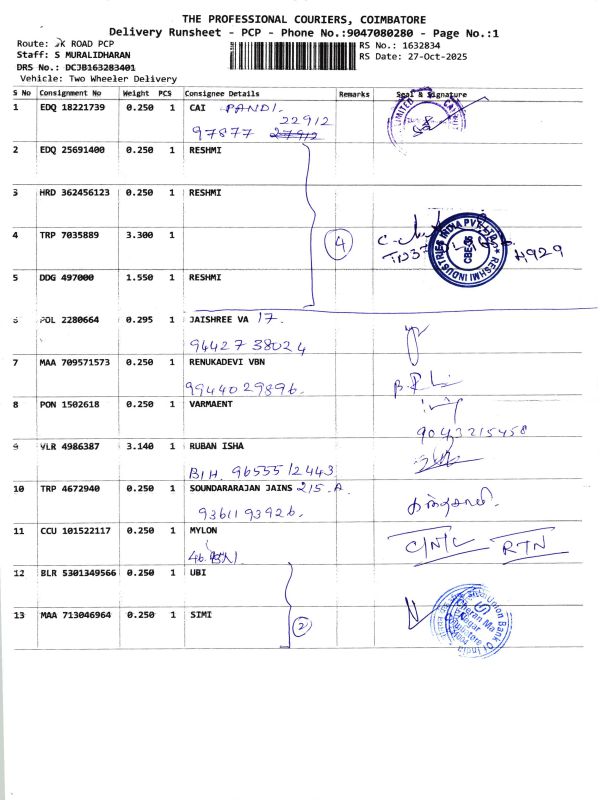 THE PROFESSIONAL COURIERS, COIMBATORE
Delivery Runsheet - PCP - Phone No.:9047080280 - Page No.:1
Route: SK ROAD PCP
Staff: S MURALIDHARAN
DRS No.: DCJB163283401
Vehicle: Two Wheeler Delivery
RS No.: 1632834
RS Date: 27-Oct-2025
S No Consignment No Weight PCS Consignee Details Remarks Seal & Signature
1 EDQ 18221739 0.250 1 CAI PANDI.
22912
97877 27912
2 EDQ 25691400 0.250 1 RESHMI
3 HRD 362456123 0.250 1 RESHMI
4 TRP 7035889 3.300 1
4
RESHMI INDUSTRIES INDIA PVT. LTD.
CBE-35
4929
5 DDG 497000 1.550 1 RESHMI
6 POL 2280664 0.295 1 JAISHREE VA 17.
94427 38024
7 MAA 709571573 0.250 1 RENUKADEVI VBN
9944029896.
8 PON 1502618 0.250 1 VARMAENT
9043215458
9 VLR 4986387 3.140 1 RUBAN ISHA
B1H. 96555 12443
10 TRP 4672940 0.250 1 SOUNDARARAJAN JAINS 215.A.
9361193926.
11 CCU 101522117 0.250 1 MYLON
C/N/C RTN
12 BLR 5301349566 0.250 1 UBI
13 MAA 713046964 0.250 1 SIMI
2
Union Bank Of India